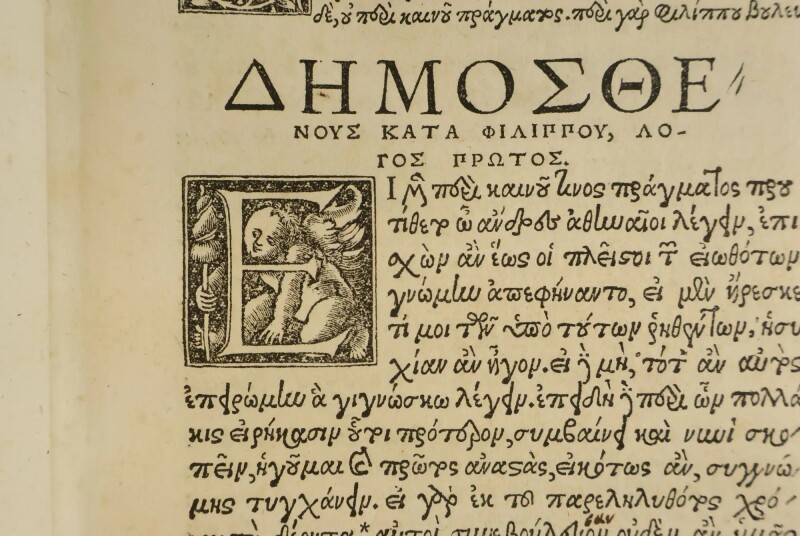 δὲ, οὐ περὶ καινοῦ πράγματος. περὶ γὰρ Φιλίππου βουλευ
ΔΗΜΟΣΘΕ
ΝΟΥΣ ΚΑΤΑ ΦΙΛΙΠΠΟΥ, ΛΟ-
ΓΟΣ ΠΡΩΤΟΣ.
ΕΙ μὲν περὶ καινοῦ τινος πράγματος πρου
τίθετο ὦ ἄνδρες ἀθηναῖοι λέγειν, ἐπι
σχὼν ἂν ἕως οἱ πλεῖστοι τῶν εἰωθότων
γνώμην ἀπεφήναντο, εἰ μὲν ἤρεσκε
τί μοι τῶν ὑπὸ τούτων ῥηθέντων, ἡσυ
χίαν ἂν ἦγον. εἰ δὲ μὴ, τότ' ἂν αὐτὸς
ἐπειρώμην ἃ γιγνώσκω λέγειν. ἐπειδὴ δὲ περὶ ὧν πολλά
κις εἰρήκασιν οὗτοι πρότερον, συμβαίνει καὶ νυνὶ σκο
πεῖν, ἡγοῦμαι καὶ πρῶτος ἀναστὰς, εἰκότως ἂν, συγγνώ
μης τυγχάνειν. εἰ γὰρ ἐκ τοῦ παρεληλυθότος χρό-
* αὐτοὶ συνεβούλευσαν οὐδὲν ἂν ὑμᾶς